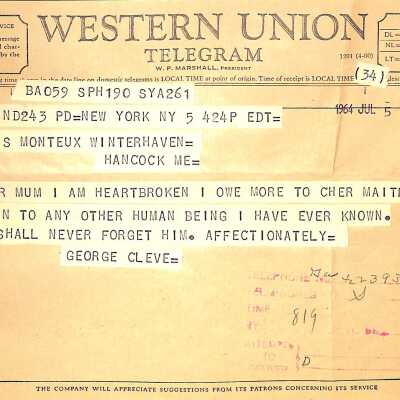 SERVICE
WESTERN UNION
TELEGRAM
W. P. MARSHALL, PRESIDENT
1201 (4-60)
DL=
NL=
time in the date line on domestic telegrams is LOCAL TIME at point of origin. Time of receipt is LOCAL TIME at point of
(34)
BA059 SPH190 SYA261
ND243 PD=NEW YORK NY 5 424P EDT=
1964 JUL 5
S MONTEUX WINTERHAVEN=
HANCOCK ME=
R MUM I AM HEARTBROKEN I OWE MORE TO CHER MAITR
N TO ANY OTHER HUMAN BEING I HAVE EVER KNOWN.
SHALL NEVER FORGET HIM. AFFECTIONATELY=
GEORGE CLEVE=
TELEPHONE
819
TO
D
THE COMPANY WILL APPRECIATE SUGGESTIONS FROM ITS PATRONS CONCERNING ITS SERVICE